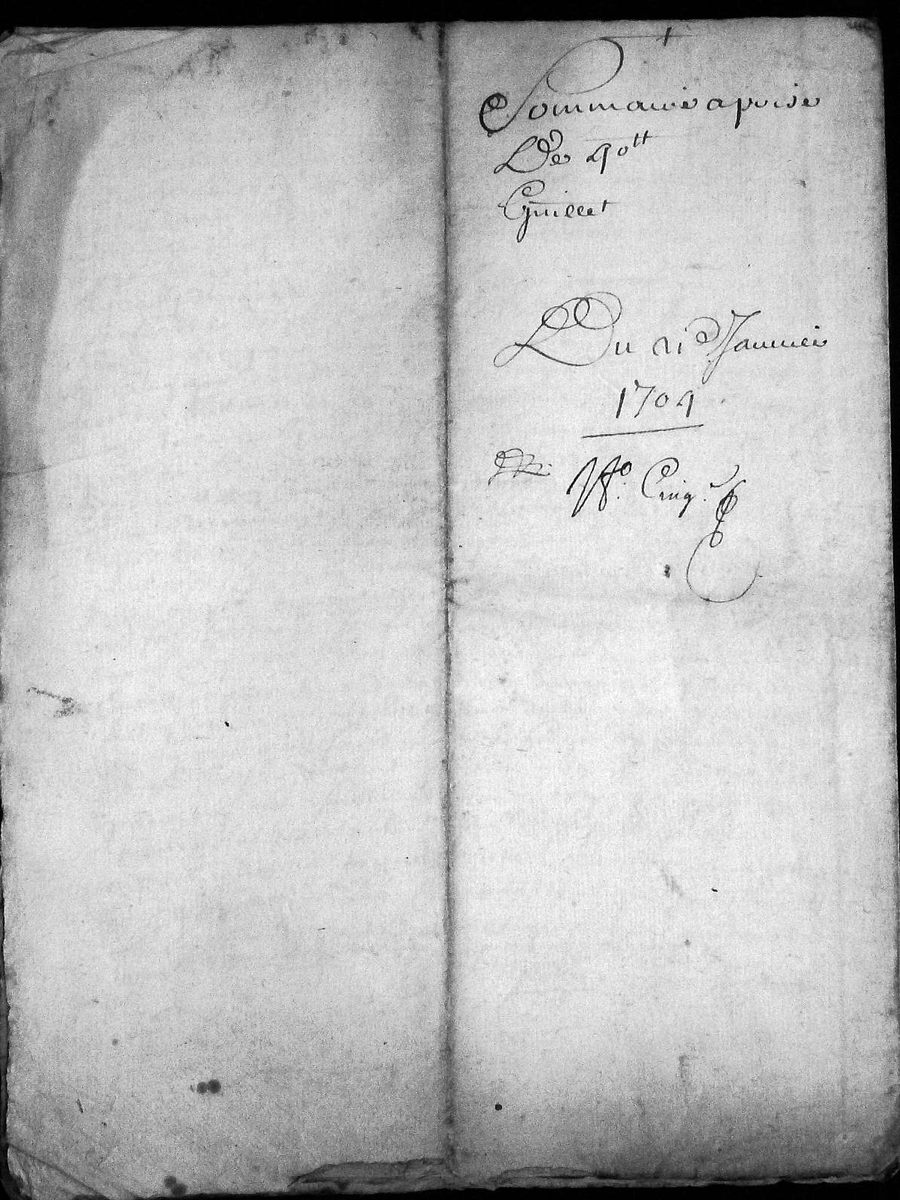 Sommaire aprise
De
Guillet
Du 21 Janvier
1704
N°. Cinq.